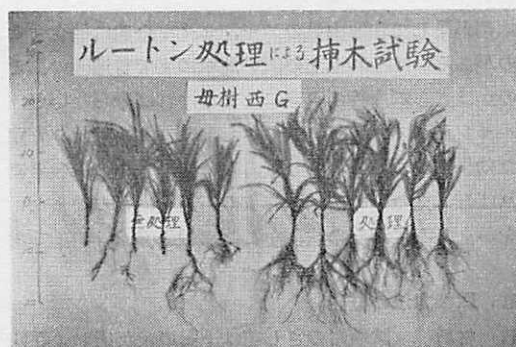 ルートン処理による挿木試験
母樹西G
無処理
処理